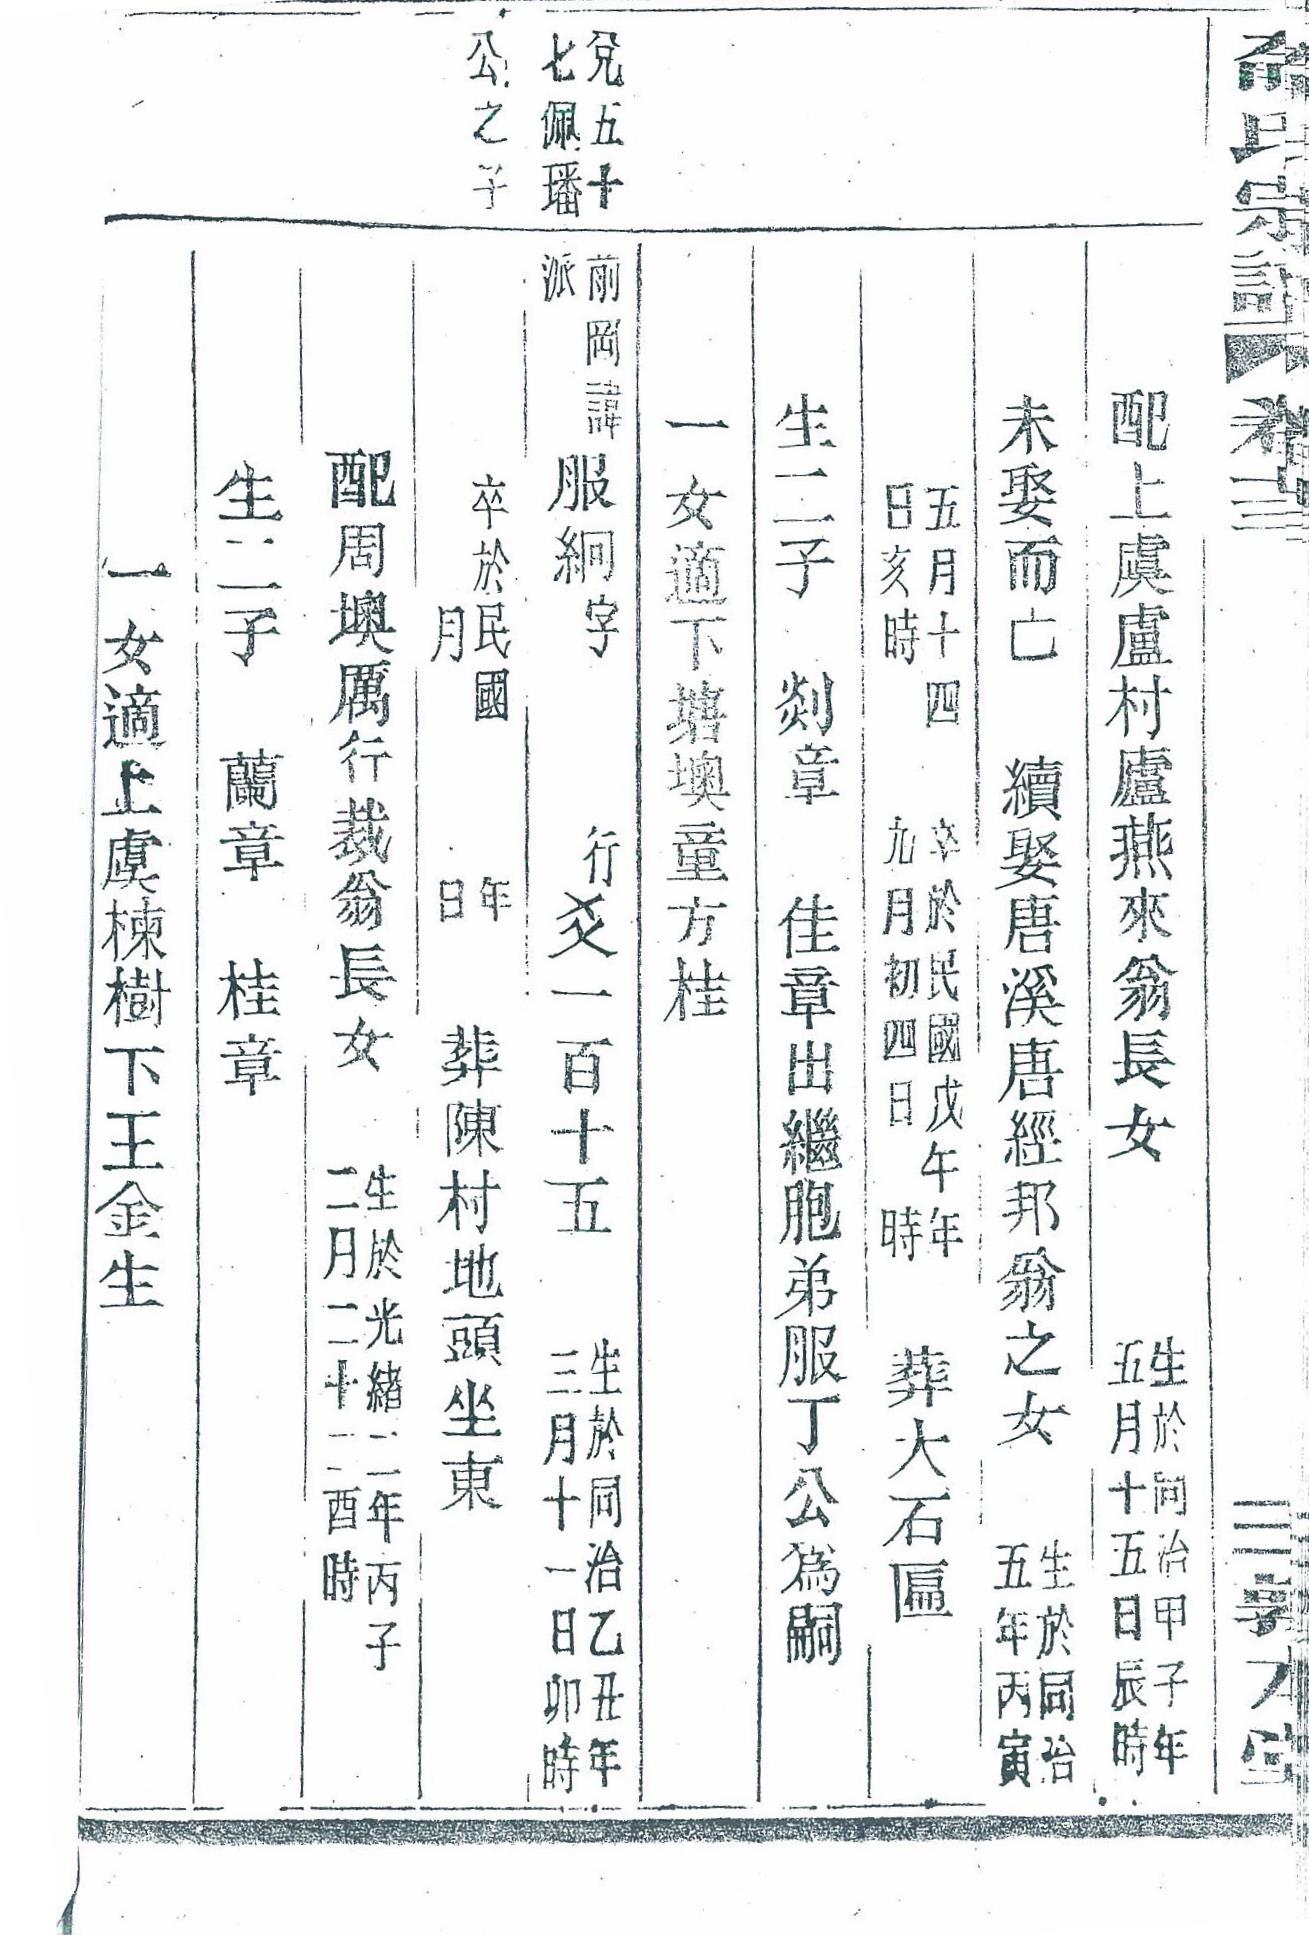 宗譜
卷三
配上虞盧村廬燕來翁長女
生於同治甲子年
五月十五日辰時
未娶而亡 續娶唐溪唐經邦翁之女
生於同治
五年丙寅
五月十四
日亥時
卒於民國戊午年
九月初四日 時
葬大石區
生二子 剡章 佳章出繼胞弟服丁公為嗣
一女適下塘墺童方桂
兌五十
七佩璠
公之子
前岡諱
派
服絅字
行
爻一百十五
生於同治乙丑年
三月十一日卯時
卒於民國 年
月 日
葬陳村地頭坐東
配周墺厲行裁翁長女
生於光緒二年丙子
二月二十二酉時
生二子 蘭章 桂章
一女適上虞楝樹下王金生